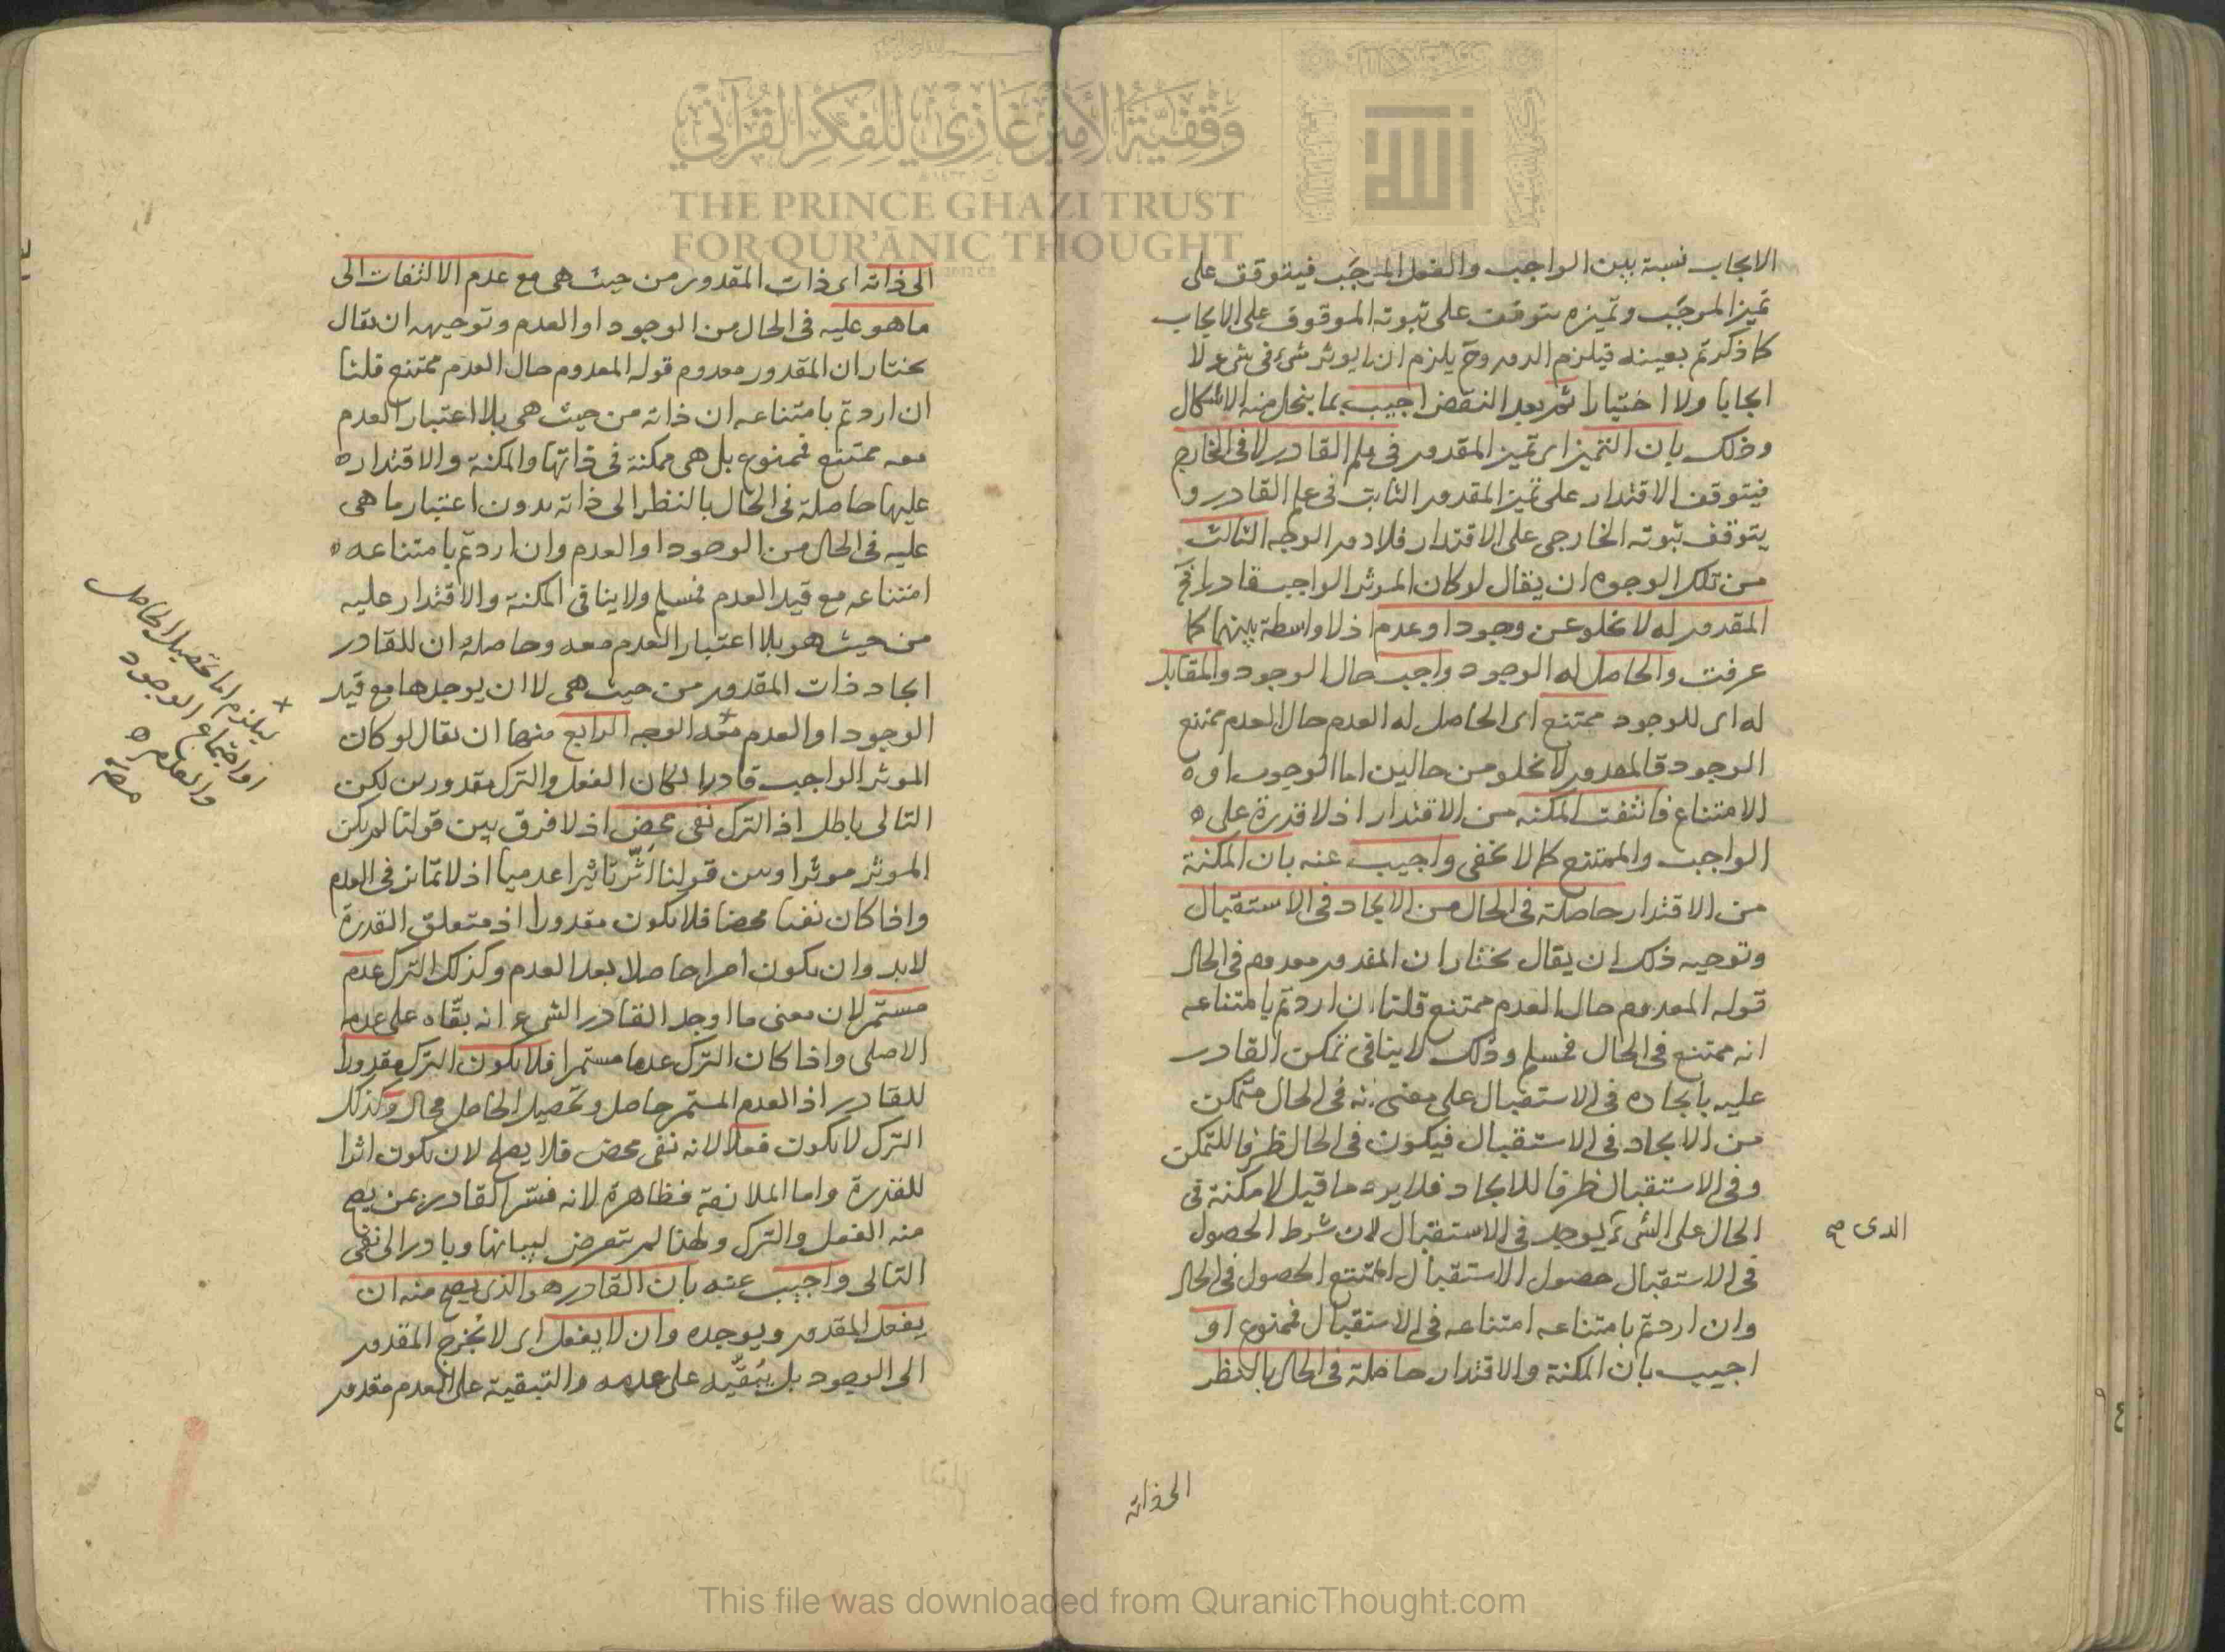 وقفية الأمير غازي للفكر القرآني
THE PRINCE GHAZI TRUST
FOR QUR'ĀNIC THOUGHT
الله
الايجاب نسبة بين الواجب والفعل الموجَب فيتوقف على
تميز الموجَب وتميزه يتوقف على ثبوته الموقوف على الايجاب
كما ذكرتم بعينه فيلزم الدور وح يلزم ان لا يوثر شئ في شئ لا
ايجابا ولا اختيارا ثم بعد النقض اجيب بما ينحل منه الاشكال
وذلك بان التميز اى تميز المقدور في علم القادر لا في الخارج
فيتوقف الاقتدار على تميز المقدور الثابت في علم القادر و
يتوقف ثبوته الخارجى على الاقتدار فلا دور الوجه الثالث
من تلك الوجوه ان يقال لو كان الموثر الواجب قادرا فح
المقدور له لا يخلو عن وجود او عدم اذ لا واسطة بينهما كما
عرفت والحاصل له الوجود واجب حال الوجود والمقابل
له اى للوجود ممتنع اى الحاصل له العدم حال العدم ممتنع
الوجود فالمقدور لا يخلو من حالين اما الوجوب او ه
الامتناع فانتفت المكنة من الاقتدار اذ لا قدرة على ه
الواجب والممتنع كما لا يخفى واجيب عنه بان المكنة
من الاقتدار حاصلة في الحال من الايجاد في الاستقبال
وتوجيه ذلك ان يقال نختار ان المقدور معدوم في الحال
قوله المعدوم حال العدم ممتنع قلنا ان اردتم بامتناعه
انه ممتنع في الحال فمسلم وذلك لا ينافى تمكن القادر
عليه بايجاده في الاستقبال على معنى انه في الحال متمكن
من الايجاد في الاستقبال فيكون في الحال ظرفا للتمكن
وفى الاستقبال ظرفا للايجاد فلا يرد ما قيل لا مكنة في
الحال على الشئ يوجد في الاستقبال لان شرط الحصول
الذى صح
في الاستقبال حصول الاستقبال الممتنع الحصول في الحال
وان اردتم بامتناعه امتناعه في الاستقبال فممنوع او
اجيب بان المكنة والاقتدار حاصلة في الحال بالنظر
الى ذاته
الى ذاته اى ذات المقدور من حيث هى مع عدم الالتفات الى
ما هو عليه في الحال من الوجود او العدم وتوجيهه ان يقال
نختار ان المقدور معدوم قوله المعدوم حال العدم ممتنع قلنا
ان اردتم بامتناعه ان ذاته من حيث هى بلا اعتبار العدم
معه ممتنع فممنوع بل هى ممكنة في ذاتها والمكنة والاقتدار ه
عليها حاصلة في الحال بالنظر الى ذاته بدون اعتبار ما هى
عليه في الحال من الوجود او العدم وان اردتم بامتناعه ه
امتناعه مع قيد العدم فمسلم ولا ينافى المكنة والاقتدار عليه
من حيث هو بلا اعتبار العدم معه وحاصله ان للقادر
ايجاد ذات المقدور من حيث هى لا ان يوجدها مع قيد
الوجود او العدم معه الوجه الرابع منها ان يقال لو كان
الموثر الواجب قادرا لكان الفعل والترك مقدورين لكن
التالى باطل اذ الترك نفى محض اذ لا فرق بين قولنا لم يكن
الموثر موثرا وبين قولنا اثّر تاثيرا عدميا اذ لا تمايز في العدم
واذا كان نفيا محضا فلا يكون مقدورا اذ متعلق القدرة
لابد وان يكون امرا حاصلا بعد العدم وكذلك الترك عدم
مستمر لان معنى ما اوجد القادر الشئ انه بقّاه على عدمه
الاصلى واذا كان الترك عدما مستمرا فلا يكون الترك مقدورا
للقادر اذ العدم المستمر حاصل وتحصيل الحاصل محال وكذلك
الترك لا يكون فعلا لانه نفى محض فلا يصلح لان يكون اثرا
للقدرة واما الملازمة فظاهرة لانه فسّر القادر بمن يصح
منه الفعل والترك ولهذا لم يتعرض لبيانها وبادر الى نفى
التالى واجيب عنه بان القادر هو الذى يصح منه ان
يفعل المقدور ويوجده وان لا يفعل اى لا يخرج المقدور
الى الوجود بل يُبقّيه على عدمه والتبقية على العدم مقدور
× ليلزم اما تحصيل الحاصل
او اجتماع الوجود
والعدم ه
This file was downloaded from QuranicThought.com